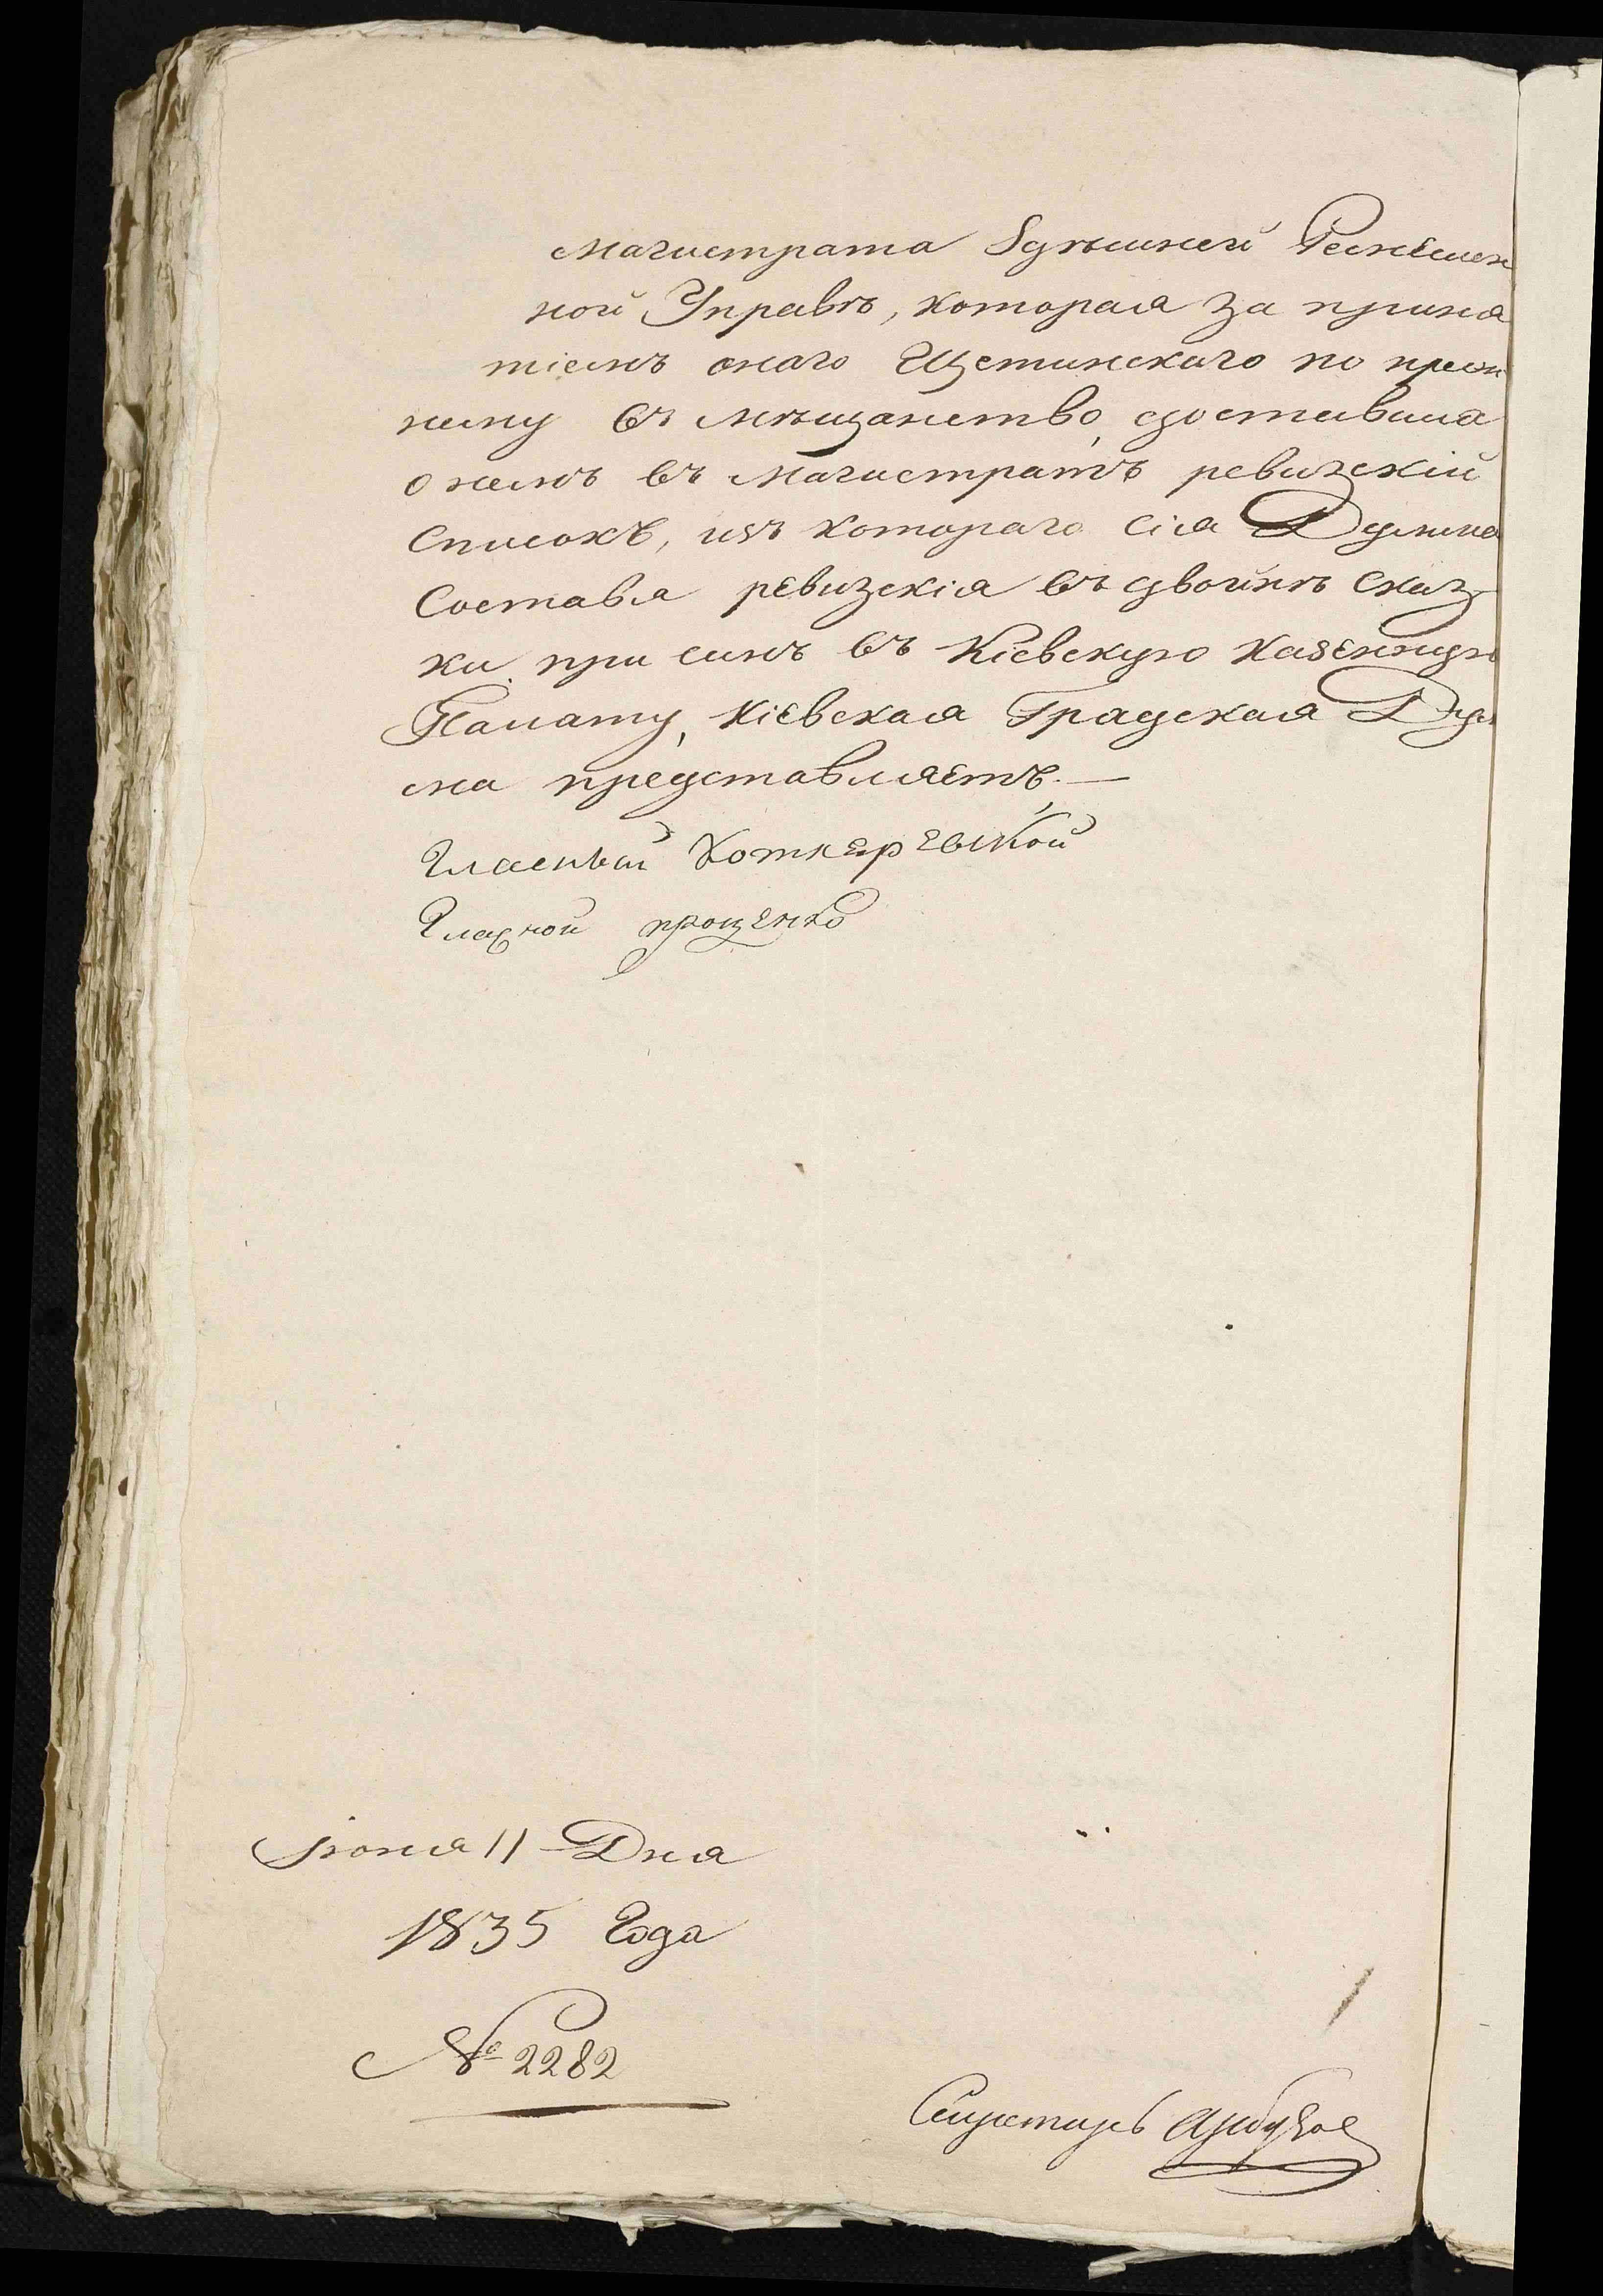 Магистрата Здѣшней Ремѣшен
ной Управѣ, которая за приня
тіемъ онаго Щетинскаго по преж
нему въ мѣщанство, доставила
о немъ въ Магистратъ ревизскій
Списокъ, изъ котораго сія Дума
Составя ревизскія въ двойнѣ Сказ-
ки при семъ въ Кіевскую Казенную
Палату, Кіевская Градская Ду
ма представляетъ.—
Гласный
Гласной проценко
Іюня 11 Дня
1835 Года
№ 2282
Секретарь